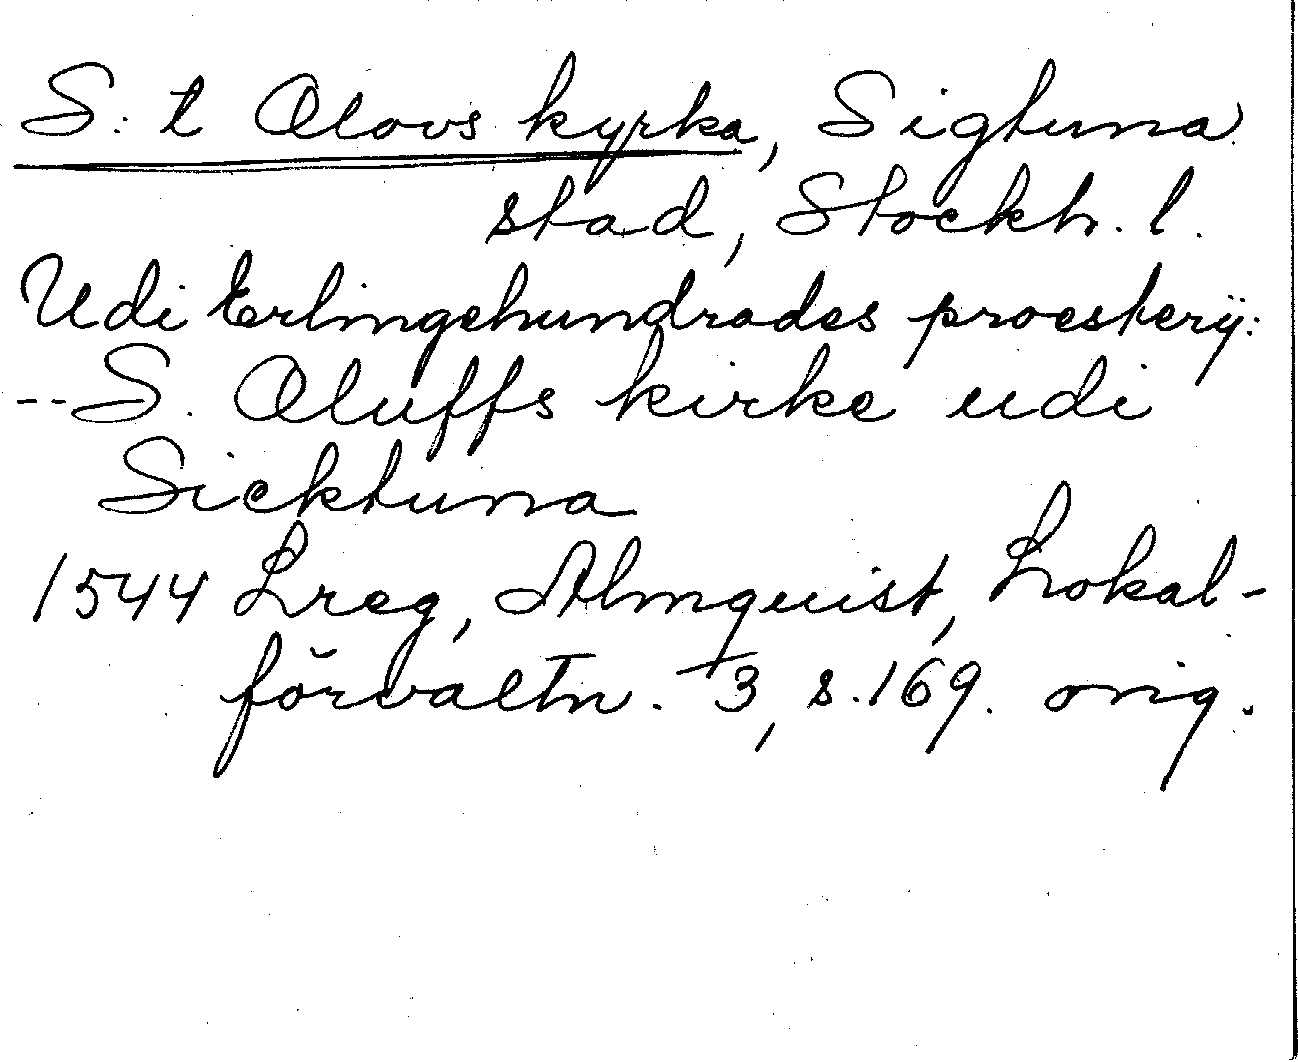 S:t Olovs kyrka, Sigtuna
stad, Stockh. l.
Udi Erlingehundrades proesterÿ:
--S. Oluffs kirke udi
Sicktuna
1544 Lreg, Almquist, Lokal-
förvaltn. 3, s. 169. orig.